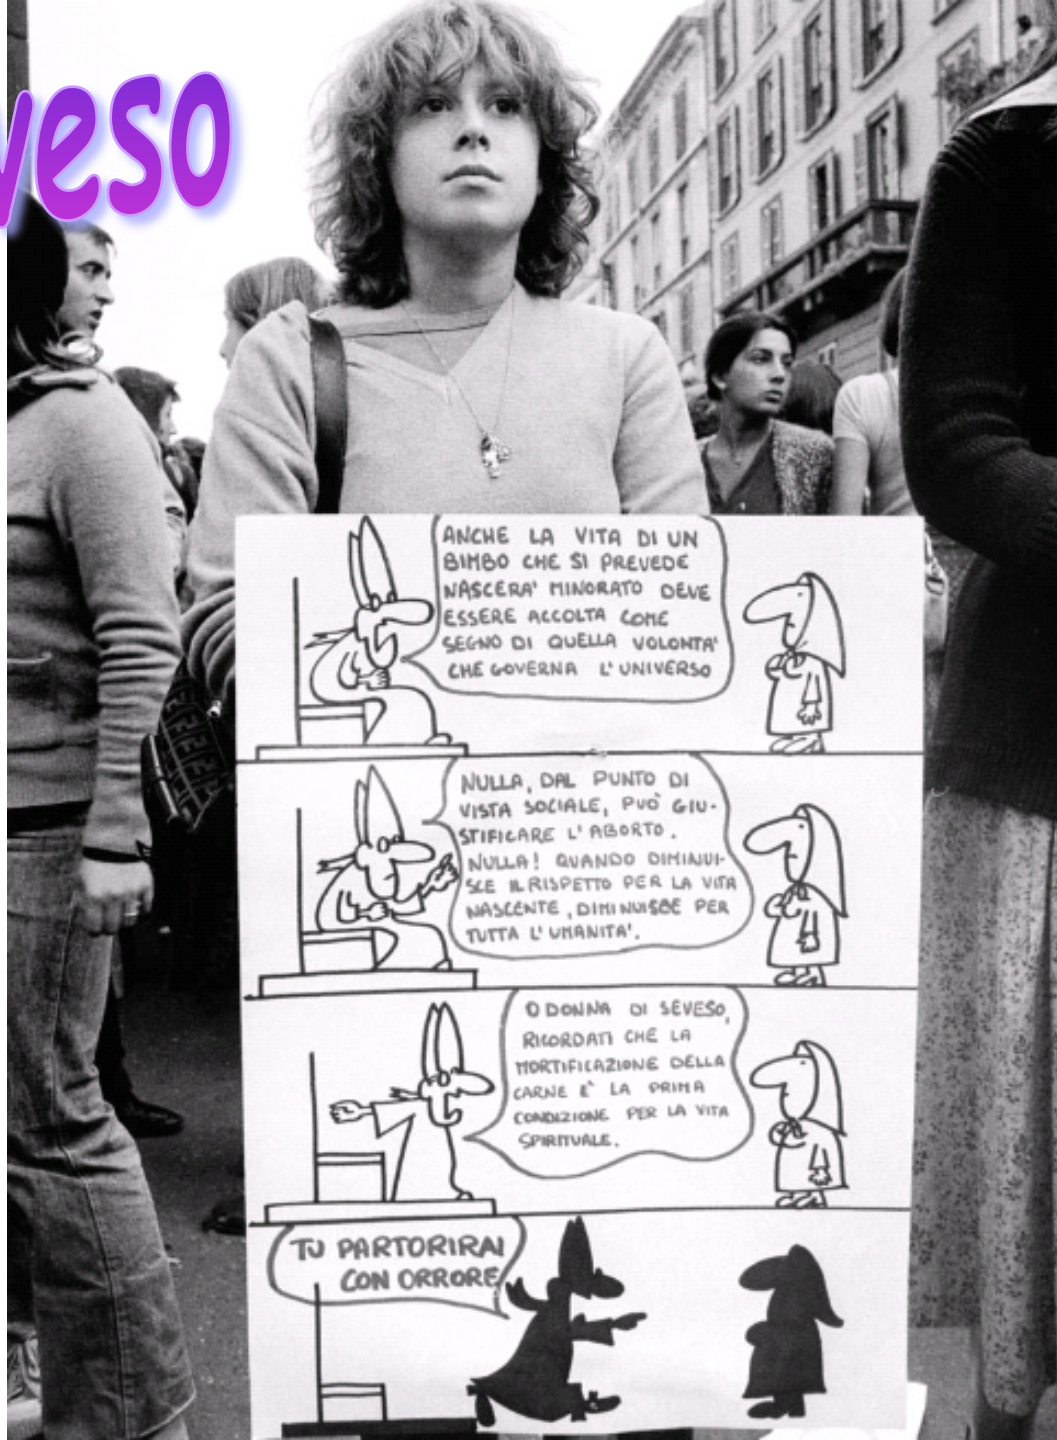 veso
ANCHE LA VITA DI UN
BIMBO CHE SI PREVEDE
NASCERA' MINORATO DEVE
ESSERE ACCOLTA COME
SEGNO DI QUELLA VOLONTA'
CHE GOVERNA L'UNIVERSO
NULLA, DAL PUNTO DI
VISTA SOCIALE, PUÒ GIU-
STIFICARE L'ABORTO.
NULLA! QUANDO DIMINUI-
SCE IL RISPETTO PER LA VITA
NASCENTE, DIMINUISCE PER
TUTTA L'UMANITA'.
O DONNA DI SEVESO,
RICORDATI CHE LA
MORTIFICAZIONE DELLA
CARNE E' LA PRIMA
CONDIZIONE PER LA VITA
SPIRITUALE.
TU PARTORIRAI
CON ORRORE